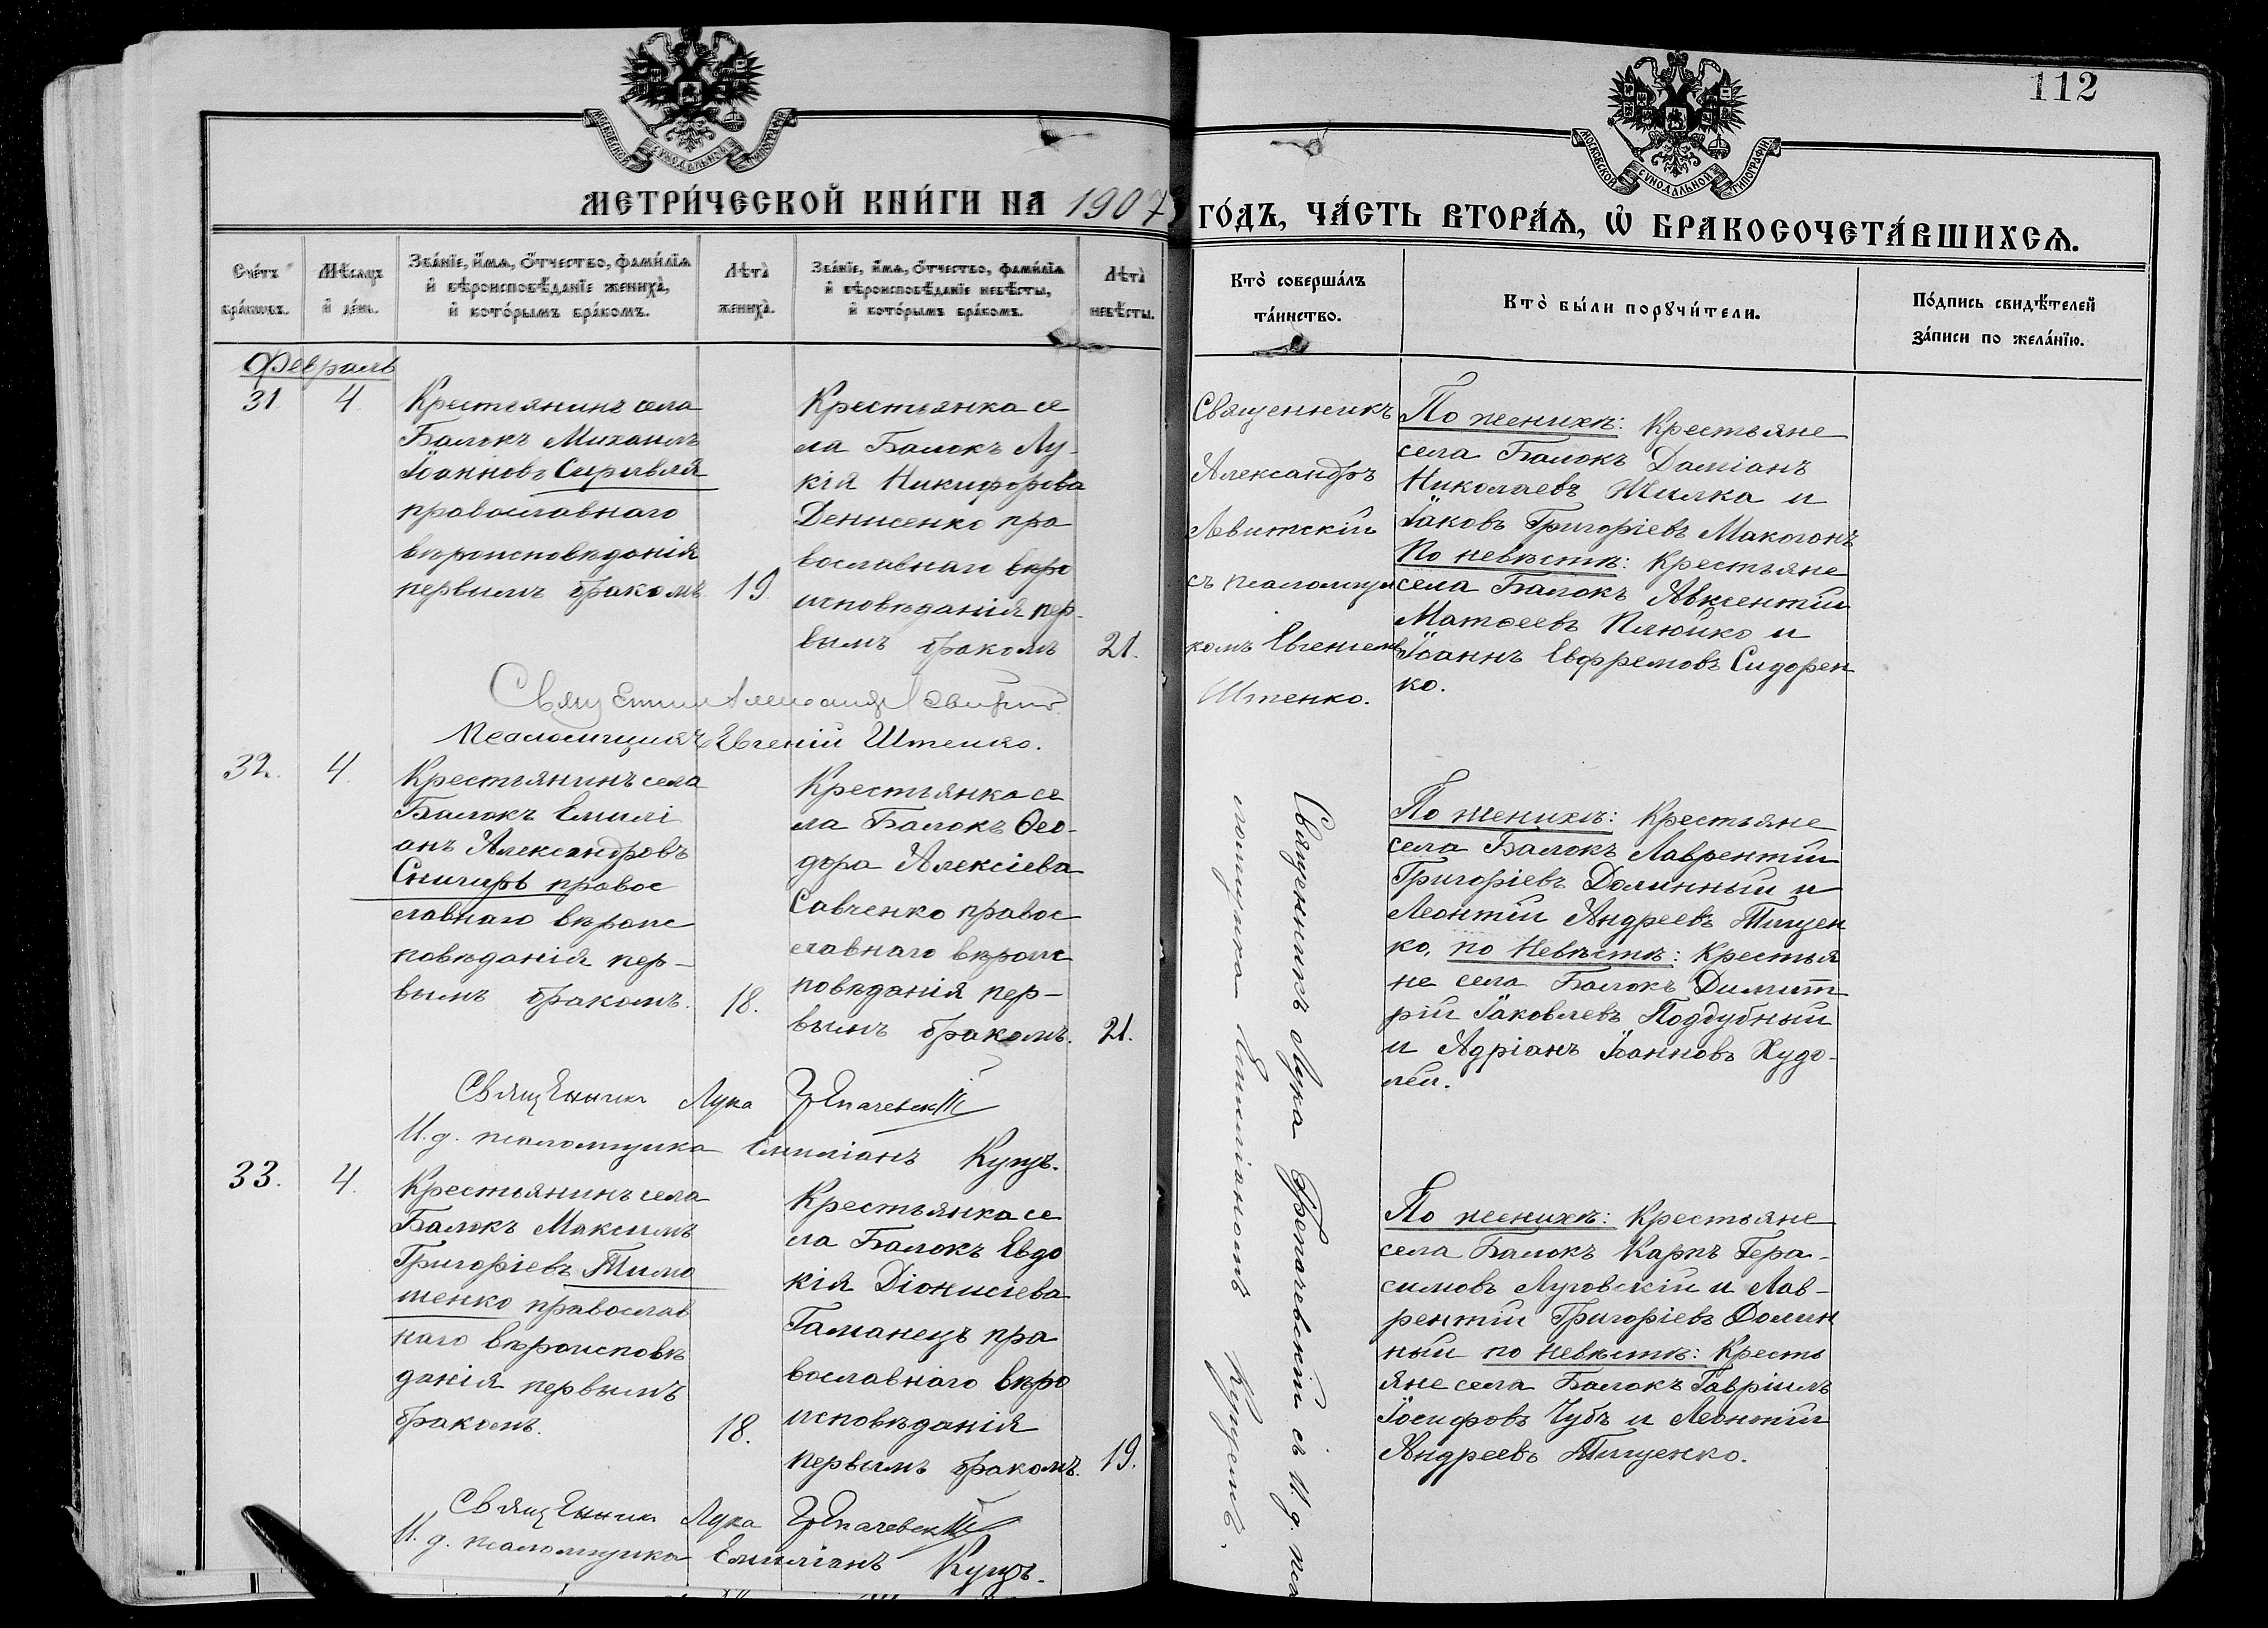 112
МОСКОВСКОЙ СУНОДАЛЬНОЙ ТИПОГРАФІИ
МОСКОВСКОЙ СУНОДАЛЬНОЙ ТИПОГРАФІИ
МЕТРИ́ЧЕСКОЙ КНИ́ГИ НА 1907
ГО́ДЪ, ЧА́СТЬ ВТОРА́Ѧ, Ѽ БРАКОСОЧЕТА́ВШИХСѦ.
Сче́тъ бра́ковъ.
Мѣ́сяцъ и҆ де́нь.
Зва́нїе, и҆́мѧ, ѻ҆́тчество, фами́лїѧ
и҆ вѣроисповѣ́данїе жениха̀,
и҆ кото́рымъ бра́комъ.
Лѣта̀ жениха̀.
Зва́нїе, и҆́мѧ, ѻ҆́тчество, фами́лїѧ
и҆ вѣроисповѣ́данїе невѣ́сты,
и҆ кото́рымъ бра́комъ.
Лѣта̀ невѣ́сты.
Кто̀ соверша́лъ
та́инство.
Кто̀ бы́ли порꙋчи́тели.
По́дпись свидѣ́телей
за́писи по жела́нїю.
Февраль
31.
4.
Крестьянинъ села
Балокъ Михаилъ
Іоанновъ Сиривля
православнаго
вѣроисповѣданія
первымъ бракомъ
19
Крестьянка се
ла Балокъ Лу-
кія Никифорова
Денисенко пра
вославнаго вѣро
исповѣданія пер-
вымъ бракомъ
21.
Священникъ
Александръ
Левитскій
съ псаломщи
комъ Евгеніемъ
Штенко.
По женихѣ: Крестьяне
села Балокъ Даміанъ
Николаевъ Шилка и
Іаковъ Григоріевъ Макогонъ
По невѣстѣ: Крестьяне
села Балокъ Авксентій
Матѳеевъ Плюйко и
Іоаннъ Евфремовъ Сидорен
ко.
Священник Александр Левитский
Псаломщикъ Евгеній Штенко.
32.
4.
Крестьянинъ села
Балокъ Емилі
анъ Александровъ
Снигирь правос
славнаго вѣроис
повѣданія пер-
вымъ бракомъ.
18.
Крестьянка се
ла Балокъ Ѳео-
дора Алексіева
Савченко правос
славнаго вѣроис
повѣданія пер-
вымъ бракомъ.
21.
Священникъ Лука Грепачевскій съ И. д. пса
ломщика Емиліаномъ Купцемъ.
По женихѣ: Крестьяне
села Балокъ Лаврентій
Григоріевъ Долинный и
Леонтій Андреевъ Тищен
ко, по невѣстѣ: Крестья
не села Балокъ Димит
рій Іаковлевъ Поддубный
и Адріанъ Іоанновъ Худо-
лѣй.
Священник Лука Грепачевскій
И. д. псаломщика Емиліанъ Купцъ.
33.
4.
Крестьянинъ села
Балокъ Максимъ
Григоріевъ Тимо
шенко православ
наго вѣроисповѣ
данія первымъ
бракомъ.
18.
Крестьянка се
ла Балокъ Евдо
кія Діонисіева
Гаманецъ пра
вославнаго вѣро
исповѣданія
первымъ бракомъ.
19.
По женихѣ: Крестьяне
села Балокъ Карпъ Гера-
симовъ Луговскій и Лав-
рентій Григоріевъ Долин
ный по невѣстѣ: Кресть
яне села Балокъ Гавріилъ
Іосифовъ Чубъ и Леонтій
Андреевъ Тищенко.
Священник Лука Грепачевскій
И. д. псаломщика Емиліанъ Купцъ.